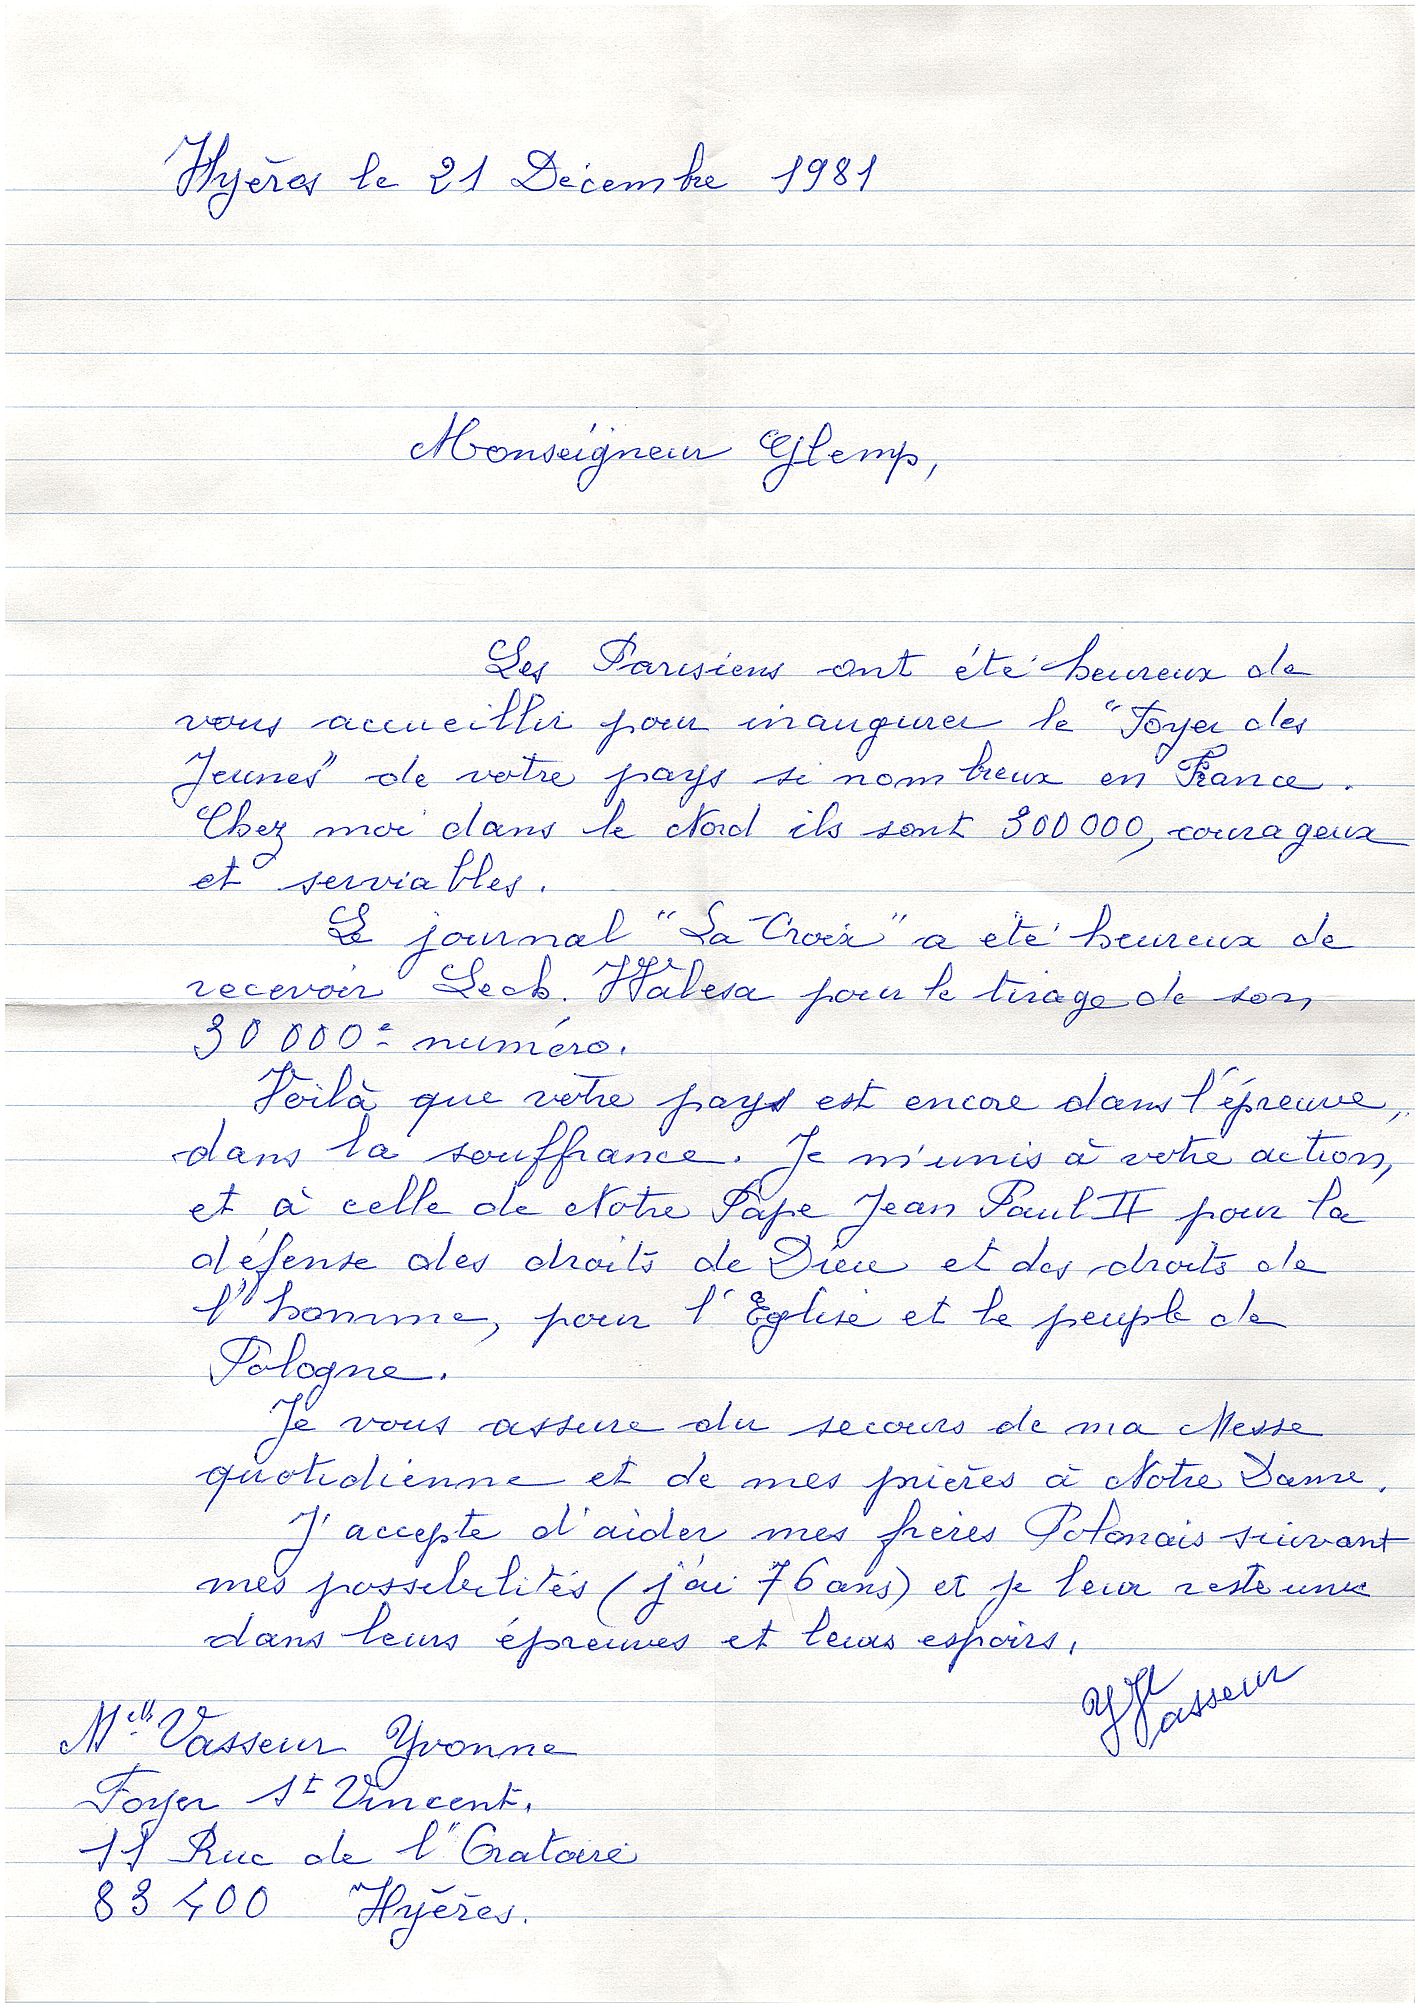 Hyères le 21 Décembre 1981
Monseigneur Glemp,
Les Parisiens ont été heureux de
vous accueillir pour inaugurer le "Foyer des
Jeunes" de votre pays si nombreux en France.
Chez moi dans le Nord ils sont 300 000, courageux
et serviables.
Le journal "La Croix" a été heureux de
recevoir Lech. Walesa pour le tirage de son
30 000e numéro.
Voilà que votre pays est encore dans l'épreuve,
dans la souffrance. Je m'unis à votre action,
et à celle de Notre Pape Jean Paul II pour la
défense des droits de Dieu et des droits de
l'homme, pour l'Eglise et le peuple de
Pologne.
Je vous assure du secours de ma Messe
quotidienne et de mes prières à Notre Dame.
J'accepte d'aider mes frères Polonais suivant
mes possibilités (j'ai 76 ans) et je leur reste unie
dans leurs épreuves et leurs espoirs.
YVasseur
Melle Vasseur Yvonne
Foyer St Vincent.
11 Rue de l'Oratoire
83 400 Hyères.